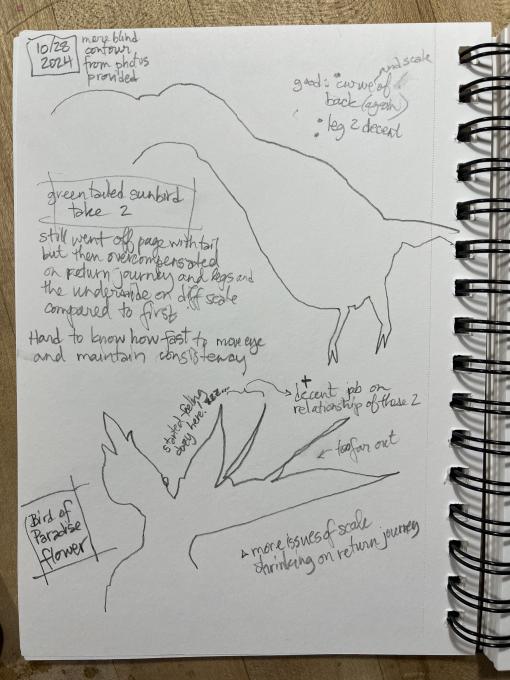 10/28
2024
more blind
contour
from photos
provided
good: • curve and scale of
back (again)
• leg 2 decent
green tailed sunbird
take 2
still went off page with tail
but then overcompensated
on return journey and legs and
the underside on diff scale
compared to first
Hard to know how fast to move eye
and maintain consistency
started feeling
okay here!
+ decent job on
relationship of these 2
← too far out
Bird of
Paradise
flower
more issues of scale
shrinking on return journey